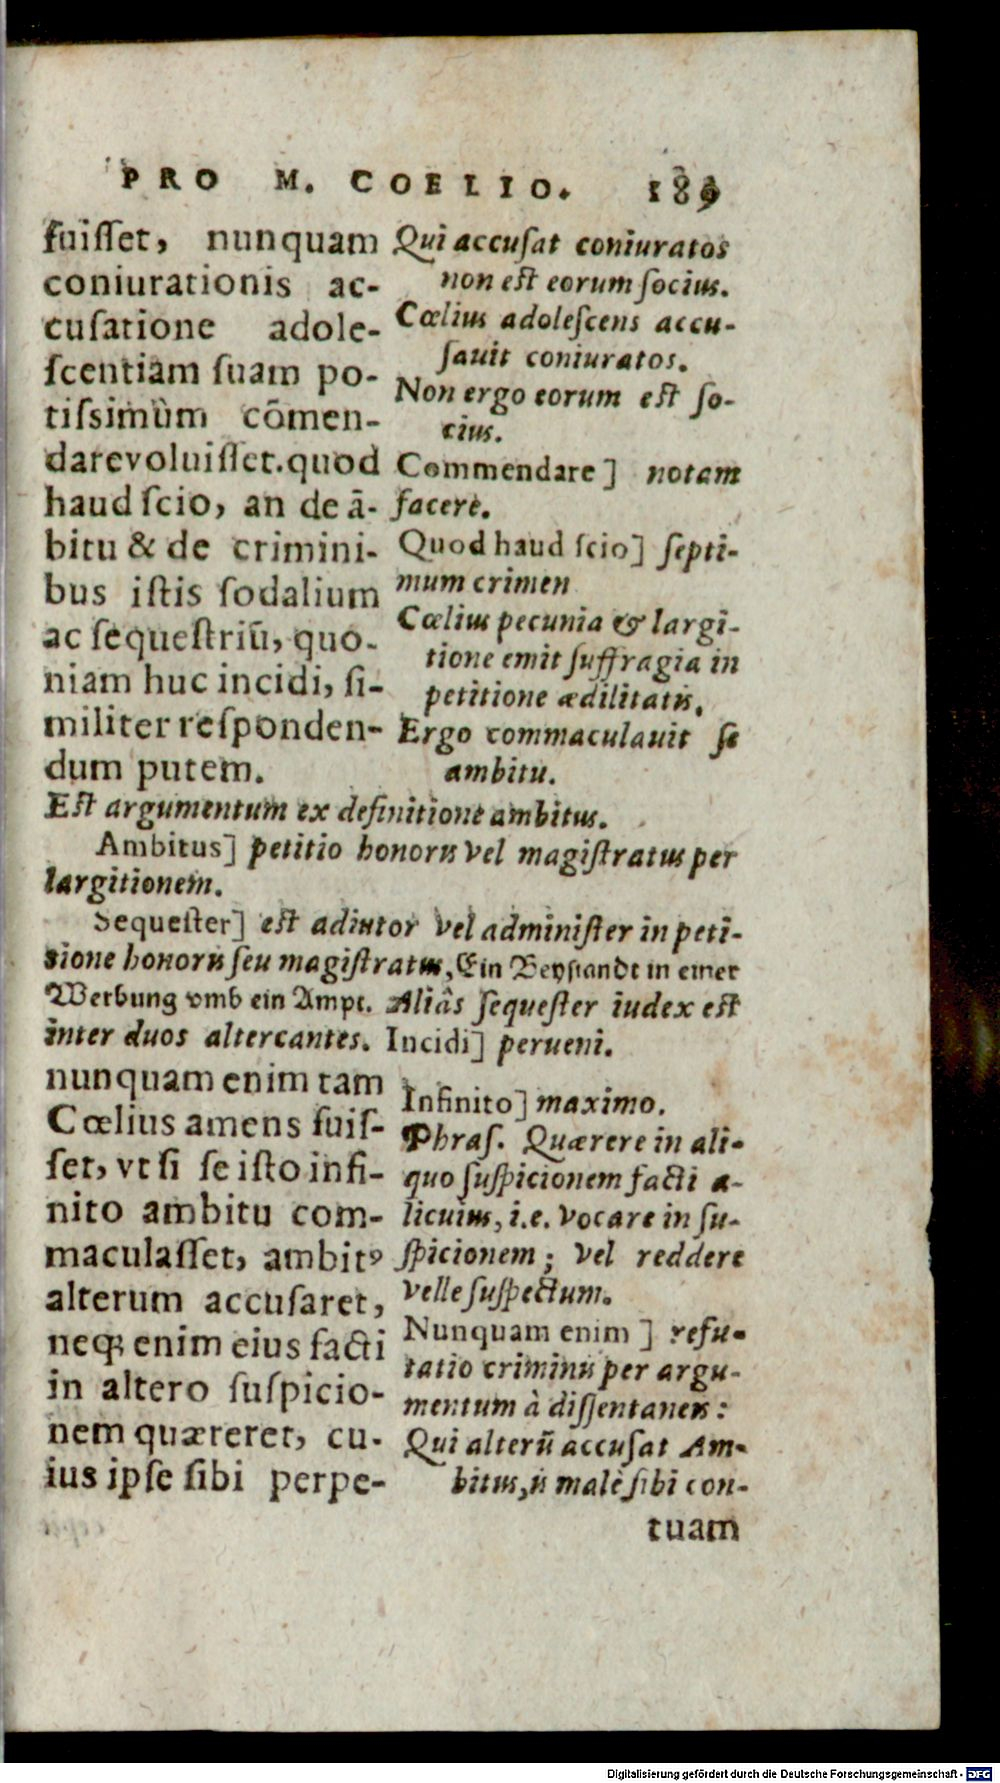 PRO M. COELIO. 189
fuiſſet, nunquam
coniurationis ac-
cuſatione adole-
ſcentiam ſuam po-
tiſsimùm cõmen-
darevoluiſſet. quod
haud ſcio, an de ā-
bitu & de crimini-
bus iſtis ſodalium
ac ſequeſtriũ, quo-
niam huc incidi, ſi-
militer reſponden-
dum putem.
Qui accuſat coniuratos
non eſt eorum ſocius.
Cœlius adoleſcens accu-
ſauit coniuratos.
Non ergo eorum eſt ſo-
cius.
Commendare] notam
facere.
Quod haud ſcio] ſepti-
mum crimen
Cœlius pecunia & largi-
tione emit ſuffragia in
petitione ædilitatis.
Ergo commaculauit ſe
ambitu.
Eſt argumentum ex definitione ambitus.
Ambitus] petitio honoris vel magiſtratus per
largitionem.
Sequeſter] eſt adiutor vel adminiſter in peti-
tione honoris ſeu magiſtratus, Ein Beyſtandt in einer
Werbung vmb ein Ampt. Aliâs ſequeſter iudex eſt
inter duos altercantes. Incidi] perueni.
nunquam enim tam
Cœlius amens fuiſ-
ſet, vt ſi ſe iſto infi-
nito ambitu com-
maculaſſet, ambitꝰ
alterum accuſaret,
neq; enim eius facti
in altero ſuſpicio-
nem quæreret, cu-
ius ipſe ſibi perpe-
Infinito] maximo.
Phraſ. Quærere in ali-
quo ſuſpicionem facti a-
licuius, i.e. vocare in ſu-
ſpicionem; vel reddere
velle ſuſpectum.
Nunquam enim] refu-
tatio criminis per argu-
mentum à diſſentaneis:
Qui alterũ accuſat Am-
bitus, is malè ſibi con-
tuam
Digitalisierung gefördert durch die Deutsche Forschungsgemeinschaft - DFG